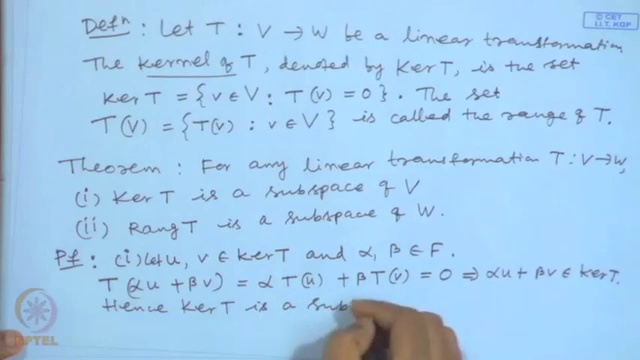 © CET
I.I.T. KGP
Defⁿ : Let T : V → W be a linear transformation
The kernel of T, denoted by Ker T, is the set
Ker T = {v ∈ V : T(v) = 0}. The set
T(V) = {T(v) : v ∈ V} is called the range of T.
Theorem : For any linear transformation T : V → W,
(i) Ker T is a subspace of V
(ii) Rang T is a subspace of W.
Pf : (i) Let u, v ∈ Ker T and α, β ∈ F.
T(αu + βv) = α T(u) + β T(v) = 0 ⇒ αu + βv ∈ Ker T.
Hence Ker T is a sub
NPTEL